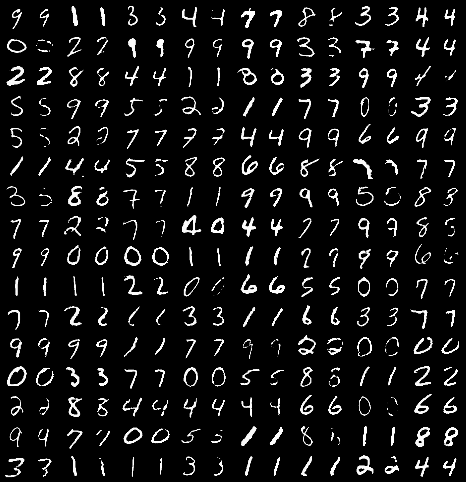 9 9 1 1 3 3 4 4 7 7 8 8 3 3 4 4
0 0 2 2 9 9 9 9 9 9 3 3 7 7 4 4
2 2 8 8 4 4 1 1 0 0 3 3 9 9 4
5 5 9 9 5 5 2 2 1 1 7 7 0 0 3 3
5 5 2 2 7 7 7 7 4 4 9 9 6 6 9 9
1 1 4 4 5 5 8 8 6 6 8 8 7 7 7 7
3 3 8 8 7 7 1 1 9 9 9 9 5 5 8 8
7 7 2 2 7 7 4 0 4 4 7 7 9 9 8
9 9 0 0 0 0 1 1 1 1 2 9 9 6
1 1 1 1 2 2 0 6 6 5 5 0 0 7 7
7 7 2 2 3 3 1 1 6 6 3 3 7 7
9 9 9 9 1 1 7 7 9 9 2 2 0 0 0 0
0 0 3 3 7 7 0 0 5 5 8 8 1 1 2 2
2 2 8 8 4 4 4 4 4 4 6 6 0 0 6 6
9 9 7 7 0 0 5 5 1 1 8 1 1 8 8
3 3 1 1 1 1 3 3 1 1 1 1 2 2 4 4